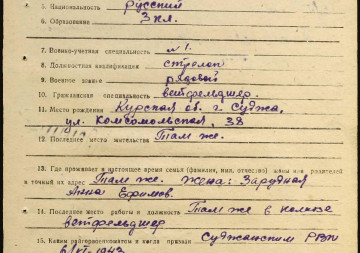 5. Национальность русский
6. Образование 3 кл.
7. Военно-учетная специальность №1.
8. Должностная квалификация стрелок
9. Военное звание рядовой
10. Гражданская специальность ветфельдшер.
11. Место рождения Курская об. г. Суджа,
ул. Комсомольская, 38
12. Последнее место жительства Там же.
13. Где проживает в настоящее время семья (фамилия, имя, отчество) жены или родителей
и точный их адрес Там же. жена: Зарудная
Анна Ефимов.
14. Последнее место работы и должность Там же в колхозе
ветфельдшер
15. Каким райгорвоенкоматом и когда призван Суджанским РВК